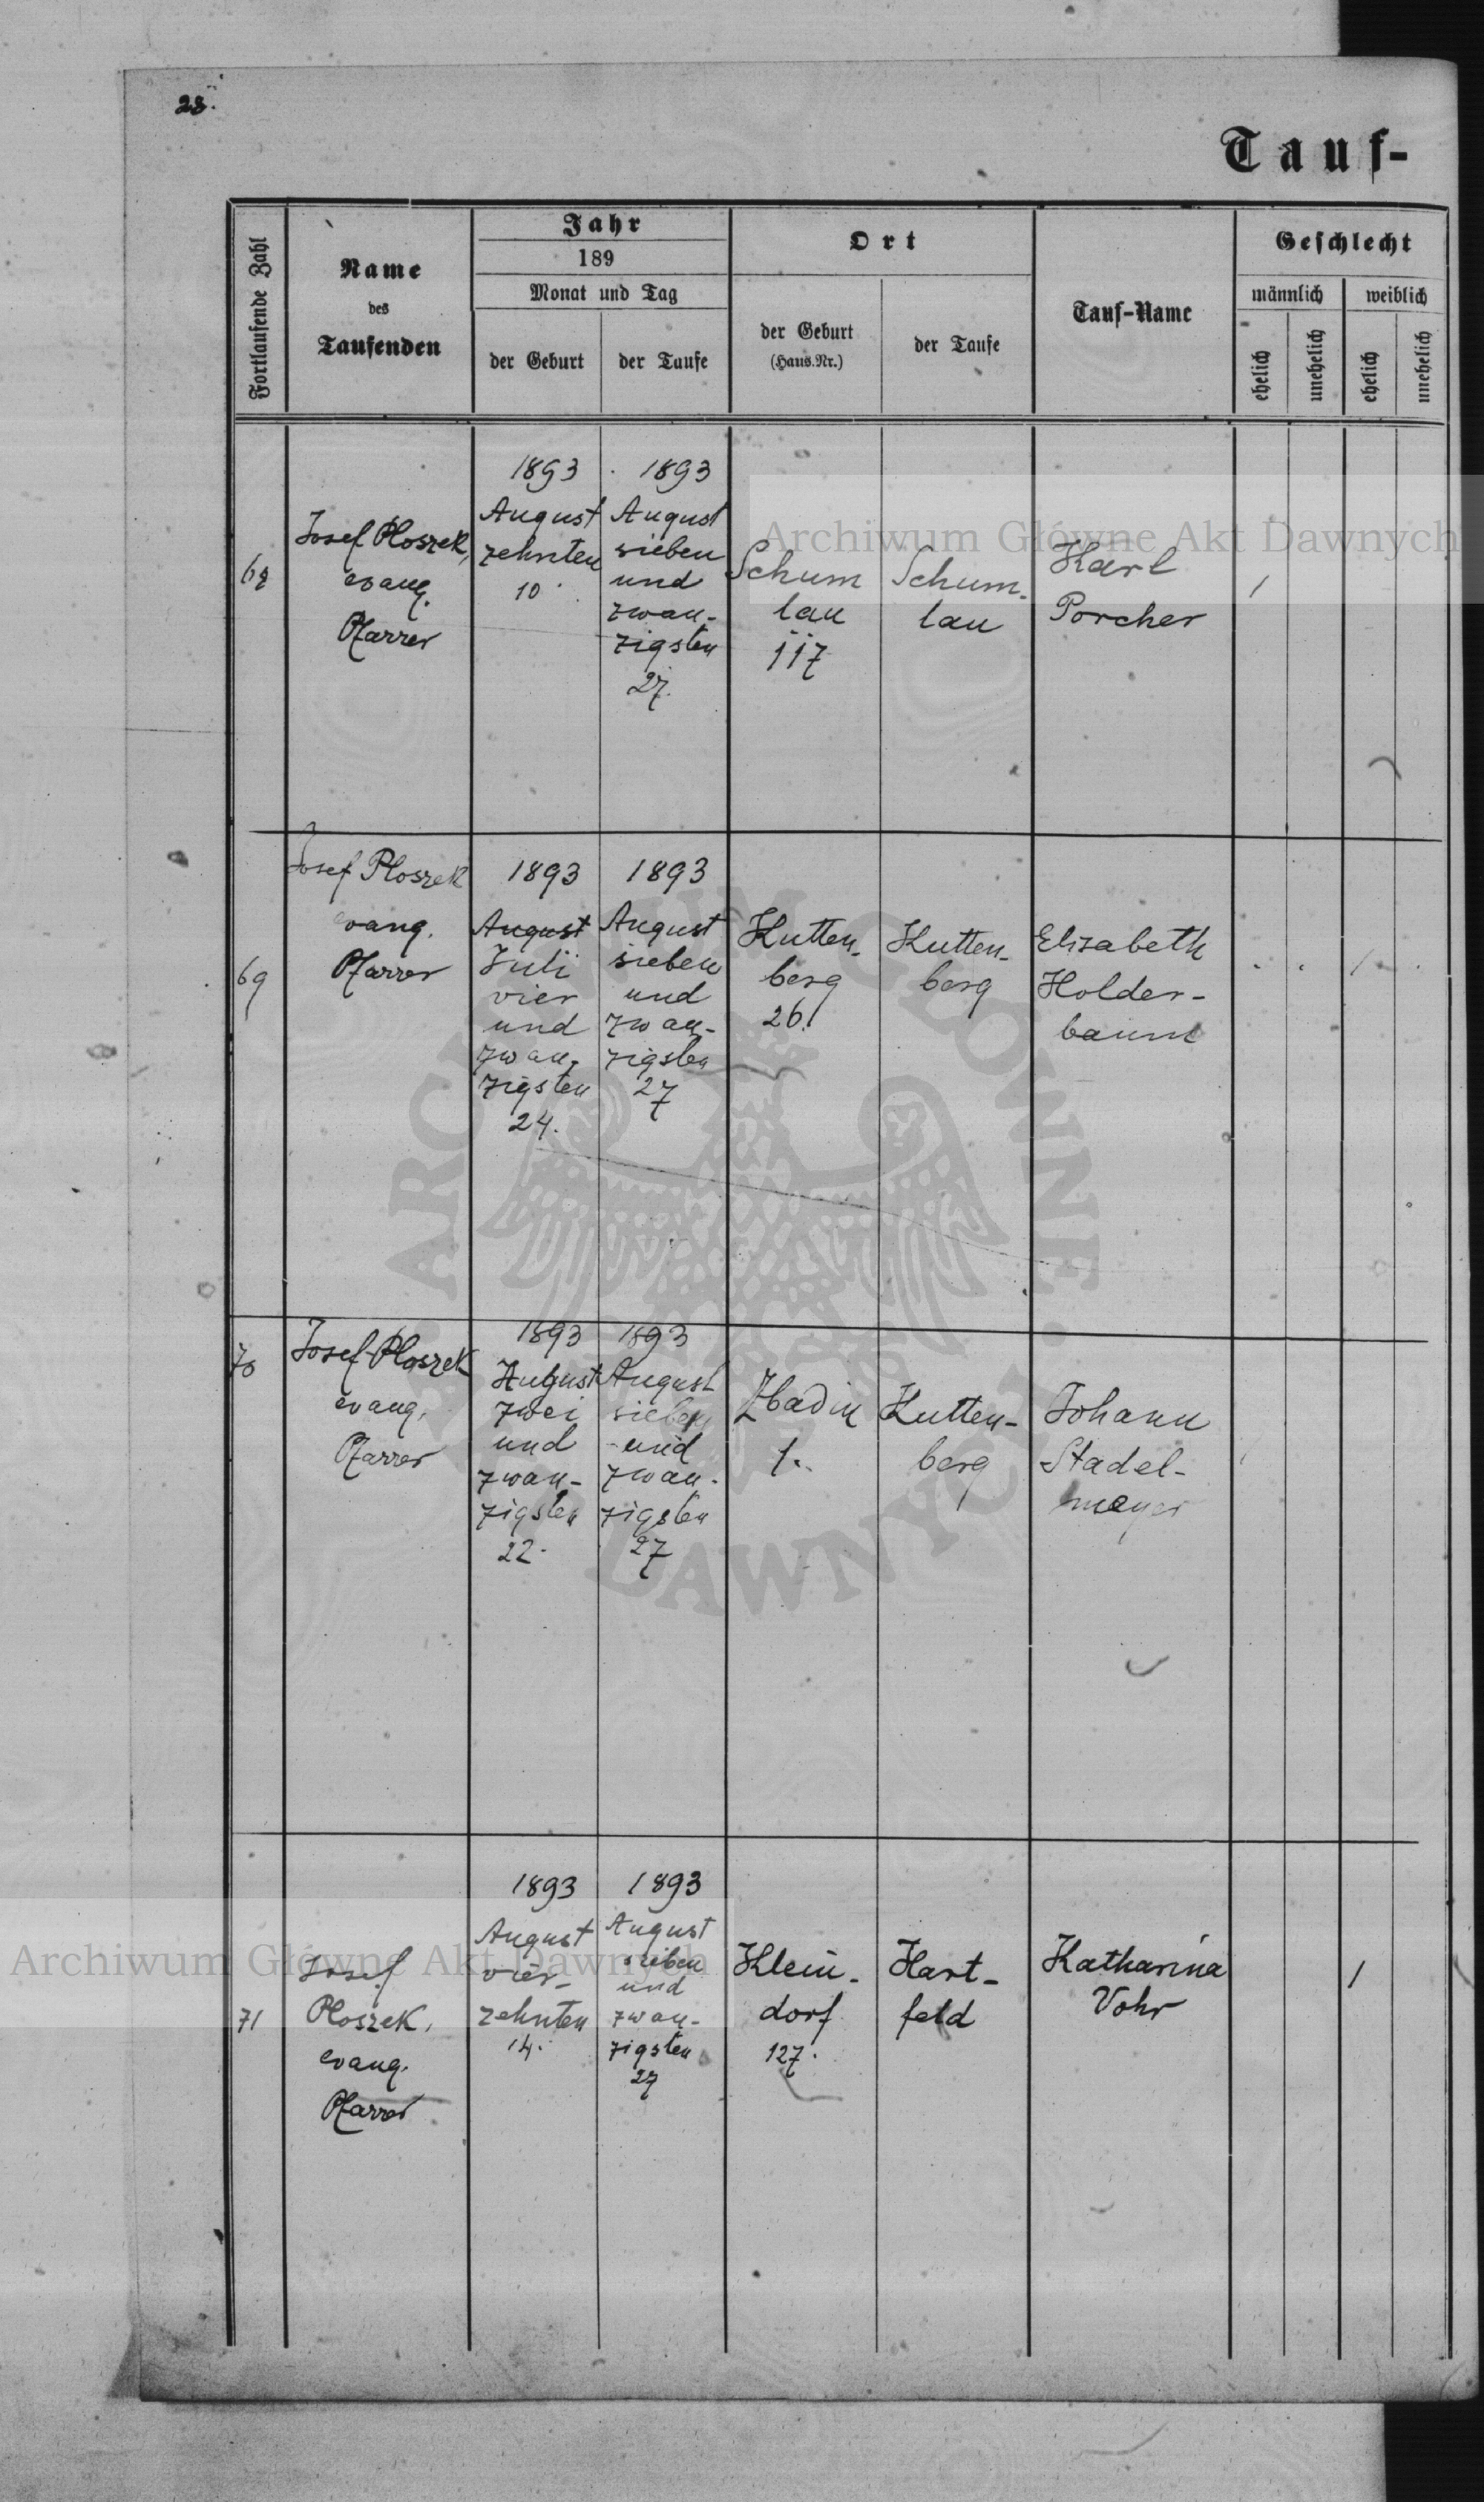 28.
Tauf-
Fortlaufende Zahl
Name
des
Taufenden
Jahr
189
Monat und Tag
der Geburt
der Taufe
Ort
der Geburt
(Haus.Nr.)
der Taufe
Tauf-Name
Geschlecht
männlich
weiblich
ehelich
unehelich
ehelich
unehelich
68
Josef Ploszek,
evang.
Pfarrer
1893
August
zehnten
10.
1893
August
sieben
und
zwan-
zigsten
27.
Schum
lau
117
Schum-
lau
Karl
Porcher
/
69
Josef Ploszek
evang.
Pfarrer
1893
August
Juli
vier
und
zwan-
zigsten
24.
1893
August
sieben
und
zwan-
zigsten
27
Kutten-
berg
26.
Kutten-
berg
Elisabeth
Holder-
baum
/
70
Josef Ploszek
evang.
Pfarrer
1893
August
zwei
und
zwan-
zigsten
22.
1893
August
sieben
und
zwan-
zigsten
27
Zbadin
1.
Kutten-
berg
Johann
Stadel-
meyer
71
Josef
Ploszek,
evang.
Pfarrer
1893
August
vier-
zehnten
14.
1893
August
sieben
und
zwan-
zigsten
27
Klein-
dorf
127.
Hart-
feld
Katharina
Vohr
/
Archiwum Główne Akt Dawnych
Archiwum Główne Akt Dawnych
ARCHIWUM GŁÓWNE AKT DAWNYCH